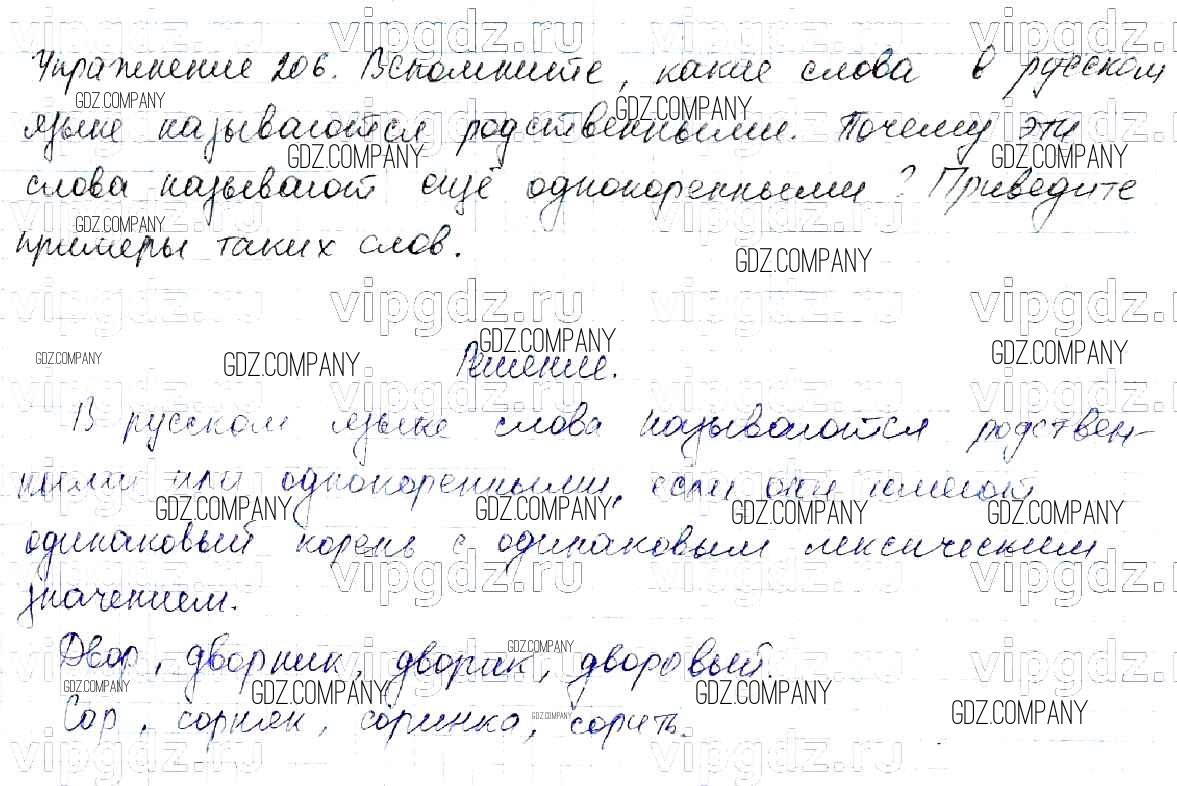 Упражнение 206. Вспомните, какие слова в русском
языке называются родственными. Почему эти
слова называют ещё однокоренными? Приведите
примеры таких слов.
Решение.
В русском языке слова называются родствен-
ными или однокоренными, если они имеют
одинаковый корень с одинаковым лексическим
значением.
Двор, дворник, дворик, дворовый.
Сор, сорняк, соринка, сорить.